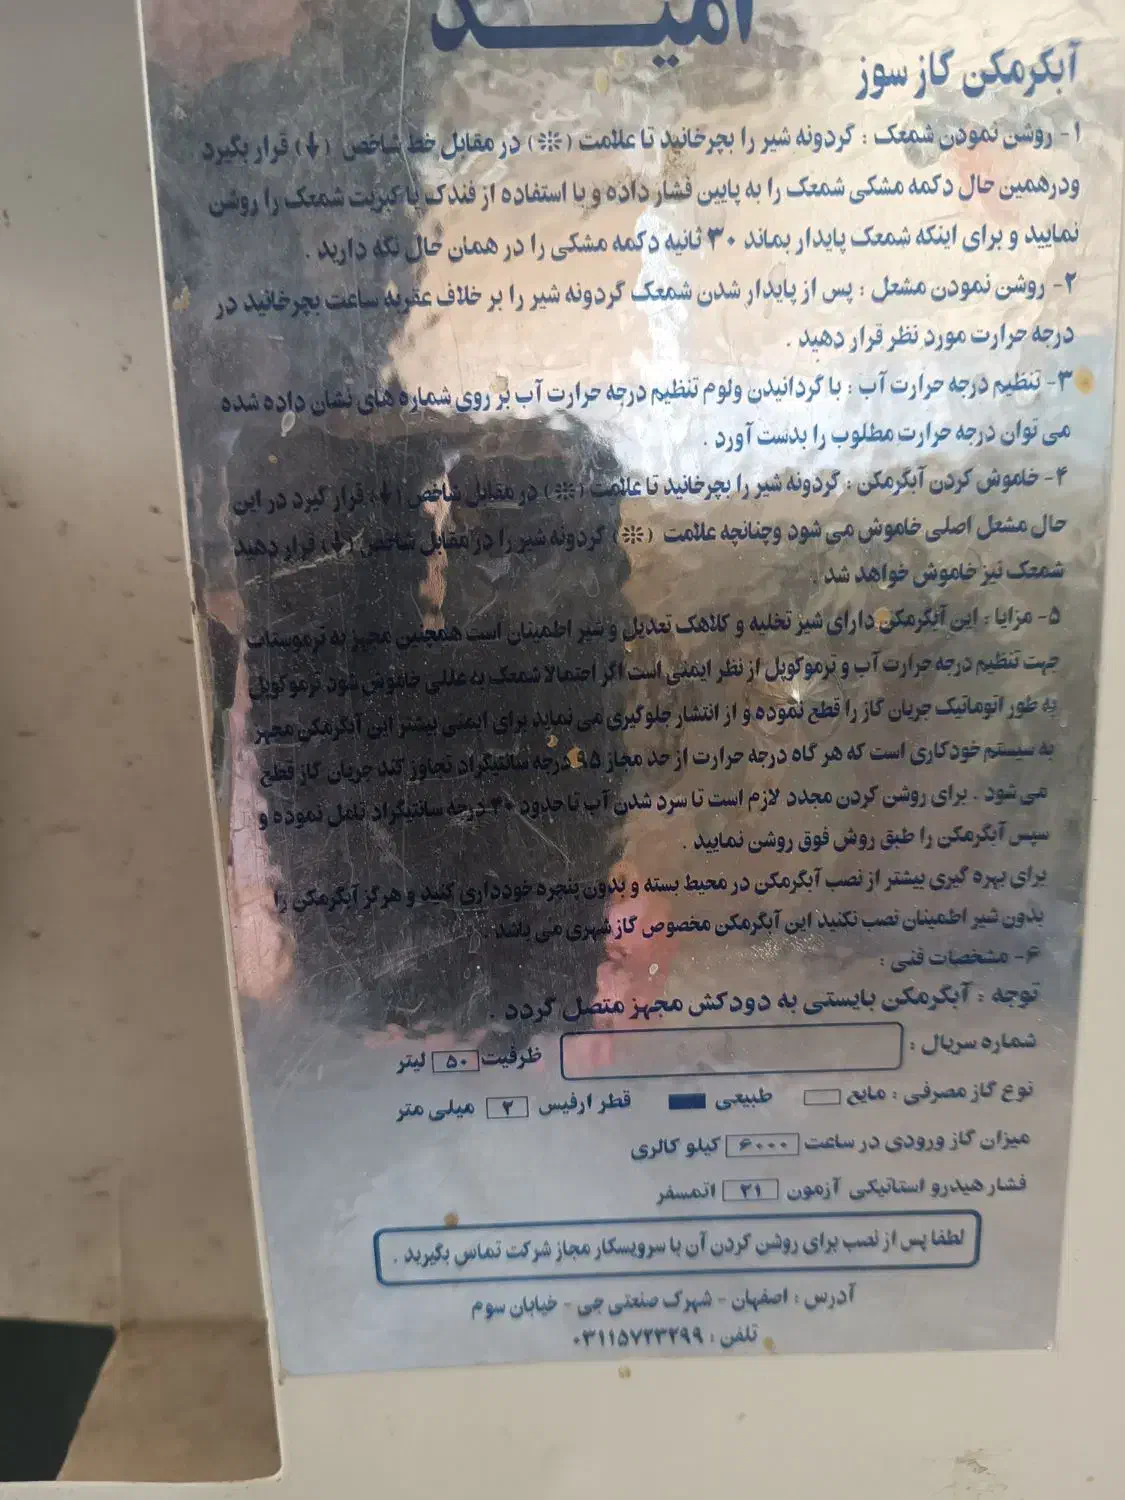 امید
آبگرمکن گاز سوز
۱- روشن نمودن شمعک : گردونه شیر را بچرخانید تا علامت (☼) در مقابل خط شاخص (↓) قرار بگیرد
ودرهمین حال دکمه مشکی شمعک را به پایین فشار داده و با استفاده از فندک یا کبریت شمعک را روشن
نمایید و برای اینکه شمعک پایدار بماند ۳۰ ثانیه دکمه مشکی را در همان حال نگه دارید .
۲- روشن نمودن مشعل : پس از پایدار شدن شمعک گردونه شیر را بر خلاف عقربه ساعت بچرخانید در
درجه حرارت مورد نظر قرار دهید .
۳- تنظیم درجه حرارت آب : با گردانیدن ولوم تنظیم درجه حرارت آب بر روی شماره های نشان داده شده
می توان درجه حرارت مطلوب را بدست آورد .
۴- خاموش کردن آبگرمکن : گردونه شیر را بچرخانید تا علامت (☼) در مقابل شاخص (↓) قرار گیرد در این
حال مشعل اصلی خاموش می شود وچنانچه علامت (☼) گردونه شیر را در مقابل شاخص (↓) قرار دهید
شمعک نیز خاموش خواهد شد .
۵- مزایا : این آبگرمکن دارای شیز تخلیه و کلاهک تعدیل و شیر اطمینان است همچنین مجهز به ترموستات
جهت تنظیم درجه حرارت آب و ترموکوپل از نظر ایمنی است اگر احتمالا شمعک به عللی خاموش شود ترموکوپل
به طور اتوماتیک جریان گاز را قطع نموده و از انتشار جلوگیری می نماید برای ایمنی بیشتر این آبگرمکن مجهز
به سیستم خودکاری است که هر گاه درجه حرارت از حد مجاز ۹۵ درجه سانتیگراد تجاوز کند جریان گاز قطع
می شود . برای روشن کردن مجدد لازم است تا سرد شدن آب تا حدود ۴۰ درجه سانتیگراد تامل نموده و
سپس آبگرمکن را طبق روش فوق روشن نمایید .
برای بهره گیری بیشتر از نصب آبگرمکن در محیط بسته و بدون پنجره خودداری کنید و هرگز آبگرمکن را
بدون شیر اطمینان نصب نکنید این آبگرمکن مخصوص گاز شهری می باشد .
۶- مشخصات فنی :
توجه : آبگرمکن بایستی به دودکش مجهز متصل گردد .
شماره سریال : ظرفیت ۵۰ لیتر
نوع گاز مصرفی : مایع طبیعی قطر ارفیس ۲ میلی متر
میزان گاز ورودی در ساعت ۶۰۰۰ کیلو کالری
فشار هیدرو استاتیکی آزمون ۲۱ اتمسفر
لطفا پس از نصب برای روشن کردن آن با سرویسکار مجاز شرکت تماس بگیرید .
آدرس : اصفهان - شهرک صنعتی جی - خیابان سوم
تلفن : ۰۳۱۱۵۷۲۳۲۹۹